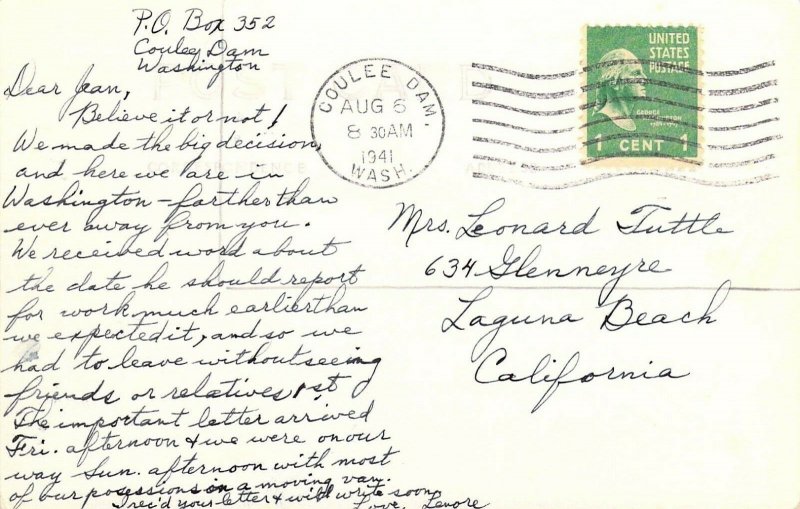 P.O. Box 352
Couleg Dam
Washington
Dear Jean,
Believe it or not!
We made the big decision,
and here we are in
Washington - farther than
ever away from you.
We received word about
the date he should report
for work much earlier than
we expected it, and so we
had to leave without seeing
friends or relatives 1st
The important letter arrived
Fri. afternoon & we were on our
way Sun. afternoon with most
of our posessions in a moving van.
I rec'd your letter & will write soon
Love, Lenore
COULEE DAM.
AUG 6
8 30AM
1941
WASH.
UNITED
STATES
POSTAGE
GEORGE
WASHINGTON
1 CENT 1
Mrs. Leonard Tuttle
634 Glenneyre
Laguna Beach
California